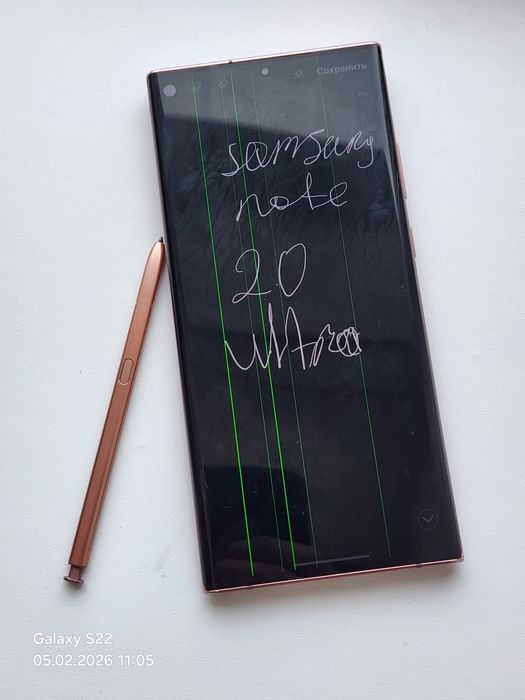 Сохранить
samsung
note
20
ultra
Galaxy S22
05.02.2026 11:05